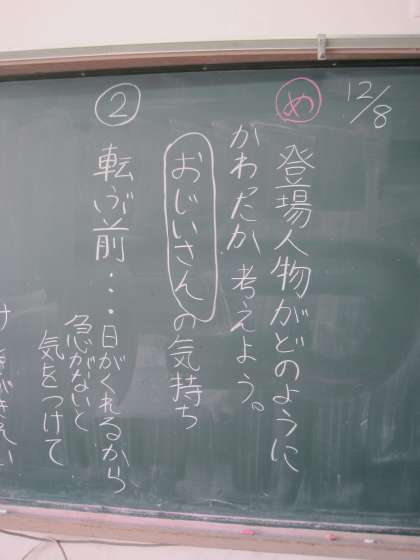 12/8
め
登場人物がどのように
かわったか考えよう。
おじいさんの気持ち
②
転ぶ前・・・日がくれるから
急がないと
気をつけて